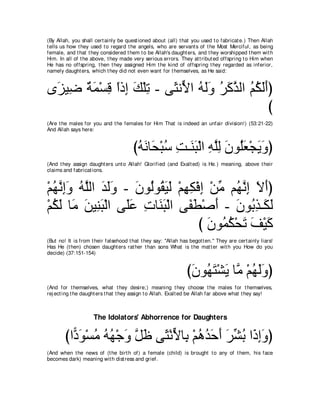 (By Allah, you shall certainly be questioned about (all) that you used to fabricate.) Then Allah
tells us how they used to regard the angels, who are servants of the Most Merciful, as being
female, and that they considered them to be Allah's daughters, and they worshipped them with
Him. In all of the above, they made very serious errors. They attributed offspring to Him when
He has no offspring, then they assigned Him the kind of offspring they regarded as inferior,
namely daughters, which they did not even want for themselves, as He said:
﴿أَلَكُمُ الذَّكَرُ وَلَهُ الاٍّنثَى - تِلْكَ إِذاً قِسْمَةٌ ضِيزَى
﴾
(Are the males for you and the females for Him That is indeed an unfair division!) (53:21-22)
And Allah says here:
﴿وَيَجْعَلُونَ لِلَّهِ الْبَنَـتِ سُبْحَانَهُ﴾
(And they assign daughters unto Allah! Glorified (and Exalted) is He.) meaning, above their
claims and fabrications.
﴿أَلاَ إِنَّهُم مِّنْ إِفْكِهِمْ لَيَقُولُونَ - وَلَدَ اللَّهُ وَإِنَّهُمْ
لَكَـذِبُونَ - أَصْطَفَى الْبَنَاتِ عَلَى الْبَنِينَ مَا لَكُمْ
كَيْفَ تَحْكُمُونَ ﴾
(But no! It is from their falsehood that they say: "Allah has begotten.'' They are certainly liars!
Has He (then) chosen daughters rather than sons What is the matter with you How do you
decide) (37:151-154)
﴿وَلَهُمْ مَّا يَشْتَهُونَ﴾
(And for themselves, what they desire;) meaning they choose the males for themselves,
rejecting the daughters that they assign to Allah. Exalted be Allah far above what they say!
The Idolators' Abhorrence for Daughters
﴿وَإِذَا بُشِّرَ أَحَدُهُمْ بِالاٍّنْثَى ظَلَّ وَجْهُهُ مُسْوَدًّا﴾
(And when the news of (the birth of) a female (child) is brought to any of them, his face
becomes dark) meaning with distress and grief.